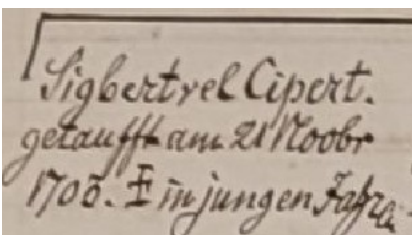 Sigbert vel Cipert.
getaufft am 21 Novbr
170ō. ‡ in jungen Jahra